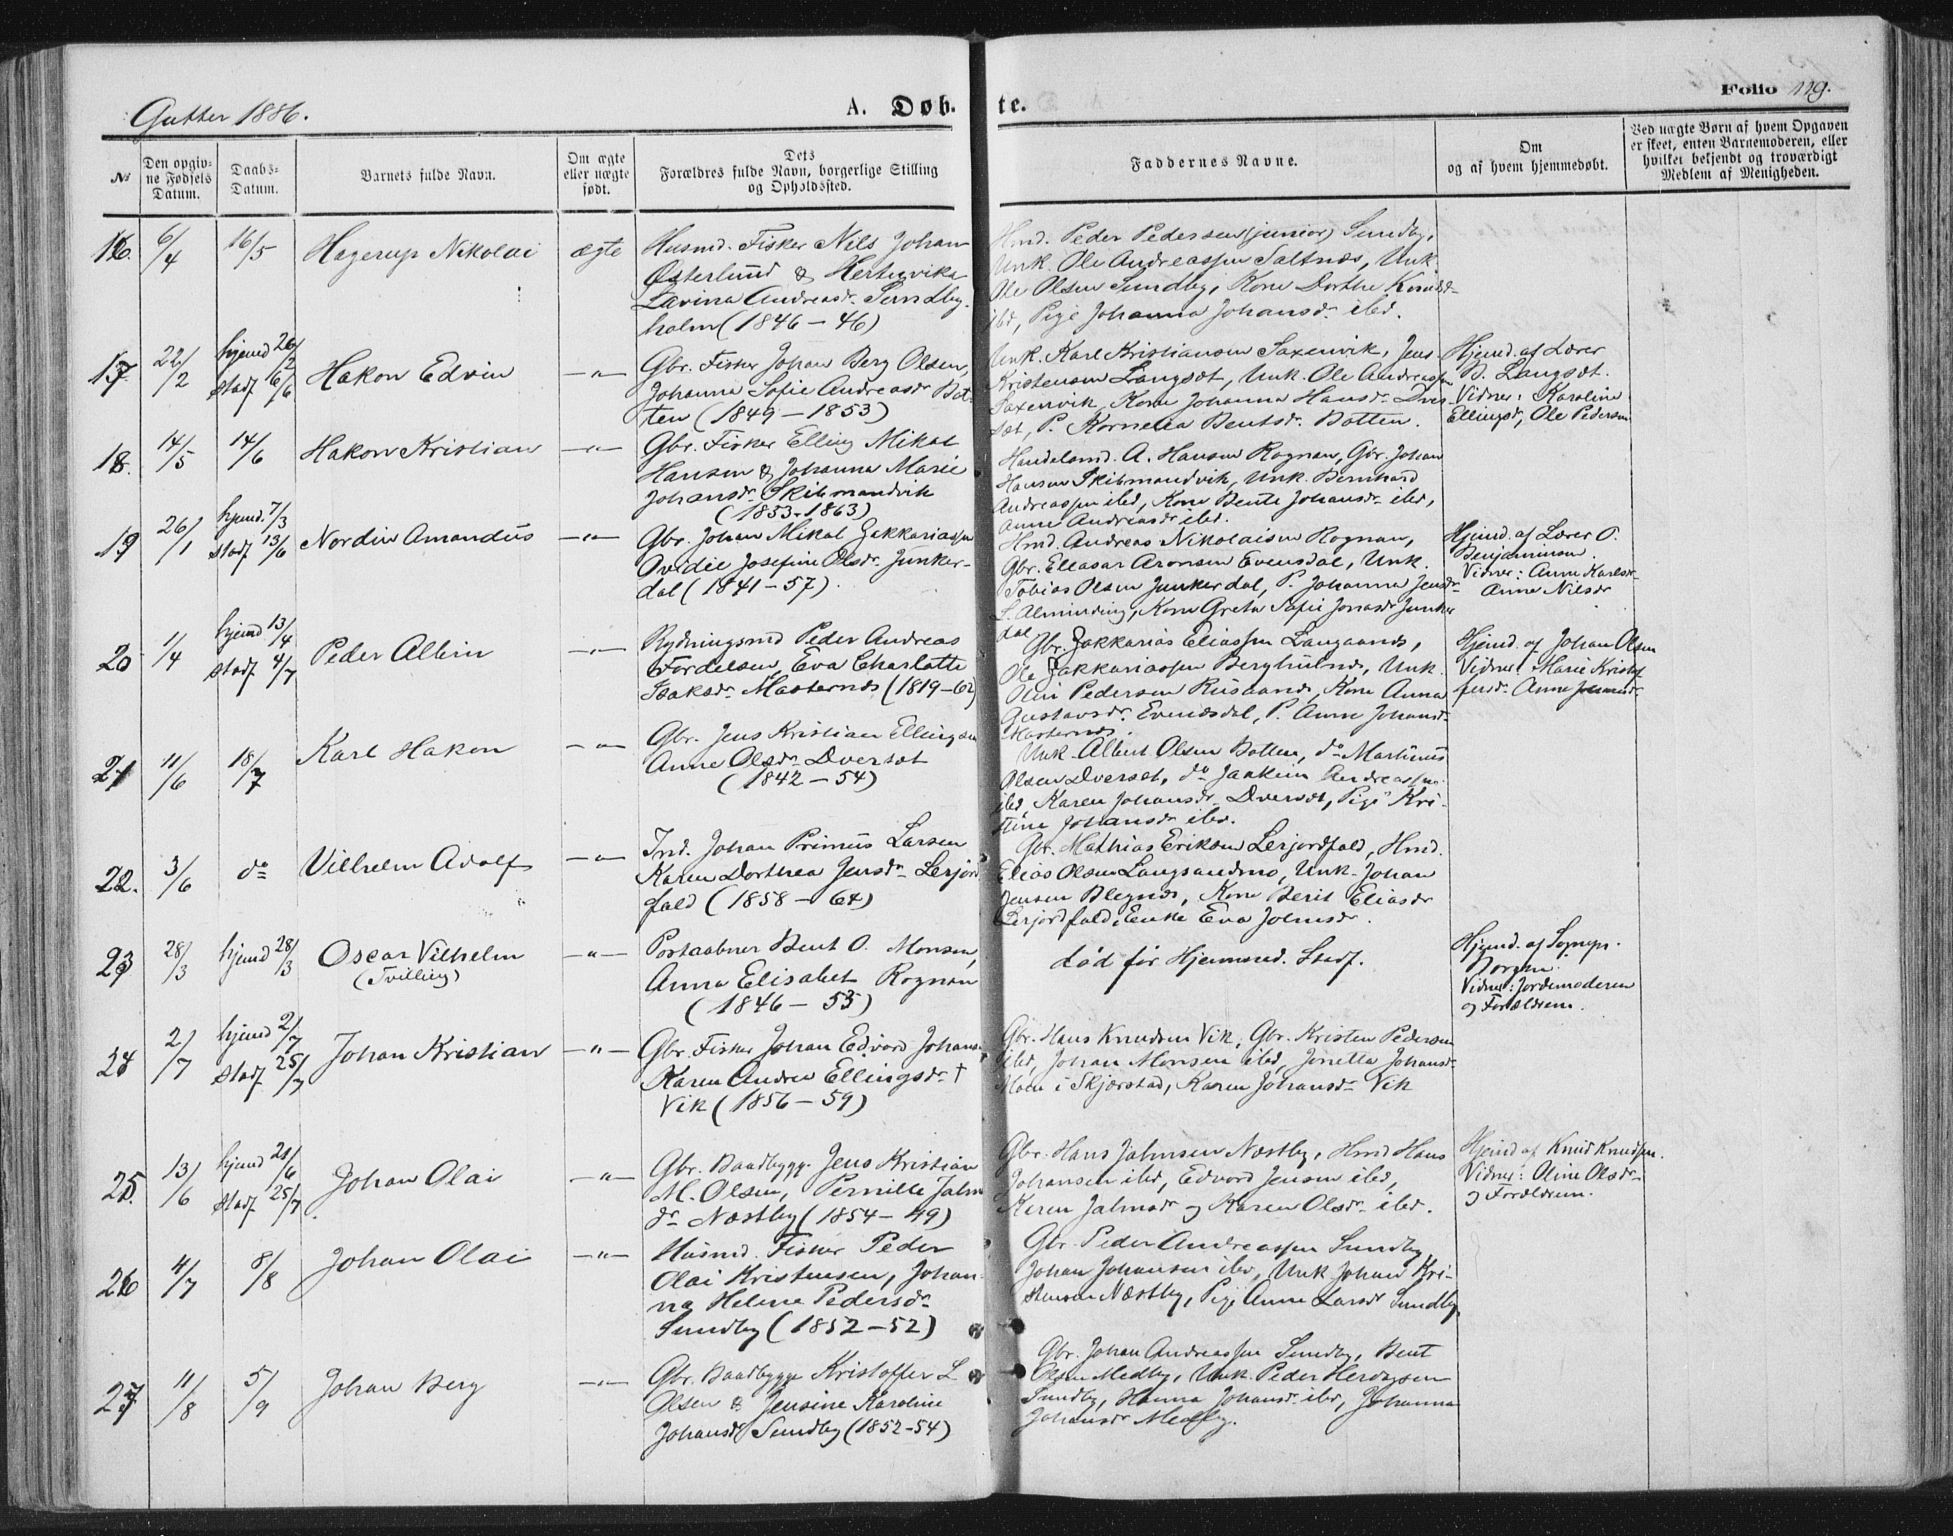 Gutter 1886.
A. Døb.
te.
Folio 119.
№
Den opgivne Fødsels Datum.
Daabs-Datum.
Barnets fulde Navn.
Om ægte eller uægte født.
Dets Forældres fulde Navn, borgerlige Stilling og Opholdssted.
Faddernes Navne.
Om og af hvem hjemmedøbt.
Ved uægte Børn af hvem Opgaven er skeet, enten Barnemoderen, eller hvilket bekjendt og troværdigt Medlem af Menigheden.
16. 6/4 16/5 Hagerup Nikolai ægte
Husmd. Fisker Nils Johan
Østerlund & Hertuvika
Lavina Andreasdr Sundby-
holm (1846 – 46)
Hmd. Peder Pedersen (junior) Sundby,
Unk. Ole Andreassen Saltnes, Unk.
Ole Olsen Sundby, Kone Dorthe
ibd, Pige Johanna Johansdr ibd.
17 22/2 hjemd 26/2 stadf 16/6 Hakon Edvin —„—
Gbr. Fisker Johan Berg Olsen,
Johanna Sofie Andreasdr Bot-
ten (1849 – 1853)
Unk. Karl Kristiansen Saxenvik, Jens
Kristensen Langset, Unk. Ole Andreassen
Saxenvik, Kone Johanna Hansdr Dver-
set, P. Kornelia Bentsdr Botten.
Hjemd. af Lærer
B. Langset.
Vidner: Karoline
Ellingsdr, Ole Pedersen
18. 14/5 14/6 Hakon Kristian —„—
Gbr. Fisker Elling Mikal
Hansen & Johanna Marie
Johansdr Skibmandvik
(1853–1863)
Handelsmd. A. Hansen Rognan, Gbr. Johan
Hansen Skibmandvik, Unk. Bernhard
Andreassen ibd, Kone Bente Johansdr ibd,
Anne Andreasdr ibd.
19 26/1 hjemd. 7/3 stadf 13/6 Nordin Amandus —„—
Gbr. Johan Mikal Zakkariassen
Ovidie Josefine Olsdr. Junker-
dal (1841 – 57).
Hmd. Andreas Nikolaisen Rognan,
Gbr. Elleasar Aronsen Evensdal, Unk.
Tobias Olsen Junkerdal, P. Johanna Jensdr
S. Alminding, Kone Greta Sofie Jonasdr Junker
dal
Hjemd. af Lærer O.
Benjaminsen.
Vidner: Anne Karlsdr
Anne Nilsdr
20 1/4 hjemd 13/4 stadf 4/7 Peder Albin —„—
Rydningsmd Peder Andreas
Fordelsen, Eva Charlotte
Isaksdr Masternes (1819 – 62)
Gbr. Zakkarias Eliassen Langaanes,
Ole Zakkariassen Berghulnes, Unk.
Olai Pedersen Rusaanes, Kone Anna
Gustavsdr. Evensdal, P. Anne Johansdr
Masternes.
Hjemd. af Johan Olsen
Vidner: Marie Kristof
fersdr Anne
21 11/6 18/7 Karl Hakon —„—
Gbr. Jens Kristian Ellingsen
Anne Olsdr Dverset
(1842 – 54)
Unk. Albert Olsen Botten, do Martinus
Olsen Dverset, do Joakim Andreassen
ibd, Karen Johansdr Dverset, Pige Kri-
stine Johansdr ibd.
22. 3/6 do Vilhelm Adolf —„—
Ind. Johan Primus Larsen
Karen Dorthea Jensdr Lerjord
fald (1858 – 64)
Gbr. Mathias Eriksen Lerjordfald, Hmd.
Elias Olsen Langsandmo, Unk. Johan
Jensen Blegnes, Kone Berit Eliasdr
Lerjordfald, Enke Eva Joensdr.
23 28/3 hjemd 28/3 Oscar Vilhelm —„—
(Tvilling)
Postaabner Bent O. Monsen,
Anna Elisabet Rognan
(1846 – 53)
død før Hjemmed. Stadf.
Hjemd. af Sognepr.
Borgen.
Vidner: Jordemoderen
og Forældrene.
24 2/7 hjemd 2/7 stadf 25/7 Johan Kristian —„—
Gbr. Fisker Johan Edvard Johansen
Karen Andrea Ellingsdr †
Vik (1856 – 59)
Gbr. Hans Knudsen Vik, Gbr. Kristen Pedersen
ibd, Johan Monsen ibd, Jonetta Johansdr
Moen i Skjerstad, Karen Johansdr Vik
25. 13/6 hjemd 21/6 stadf 25/7. Johan Olai —„—
Gbr. Baadbygg. Jens Kristian
M. Olsen, Pernille Jahn
dr Næstby (1854 – 49)
Gbr. Hans Jahnsen Næstby, Hmd Hans
Johansen ibd, Edvard Jensen ibd,
Karen Jahnsdr og Karen Olsdr ibd.
Hjemd af Knud Knudsen.
Vidner: Oline Olsdr
og Forældrene.
26 4/7 8/8 Johan Olai —„—
Husmd. Fisker Peder
Olai Kristensen, Johan-
na Helene Pedersdr
Sundby (1852 – 52)
Gbr. Peder Andreassen Sundby,
Johan Johansen ibd, Unk Johan Kri-
stensen Næstby, Pige Anne Larsdr Sundby,
27 11/8 5/9 Johan Berg —„—
Gbr. Baadbygge Kristoffer L
Olsen & Jensine Karoline
Johansdr Sundby (1852–54)
Gbr. Johan Andreassen Sundby, Bent
Olsen Medby, Unk. Peder
Sundby, Hanna Johansdr ibd, Johanna
Johansdr Medby.